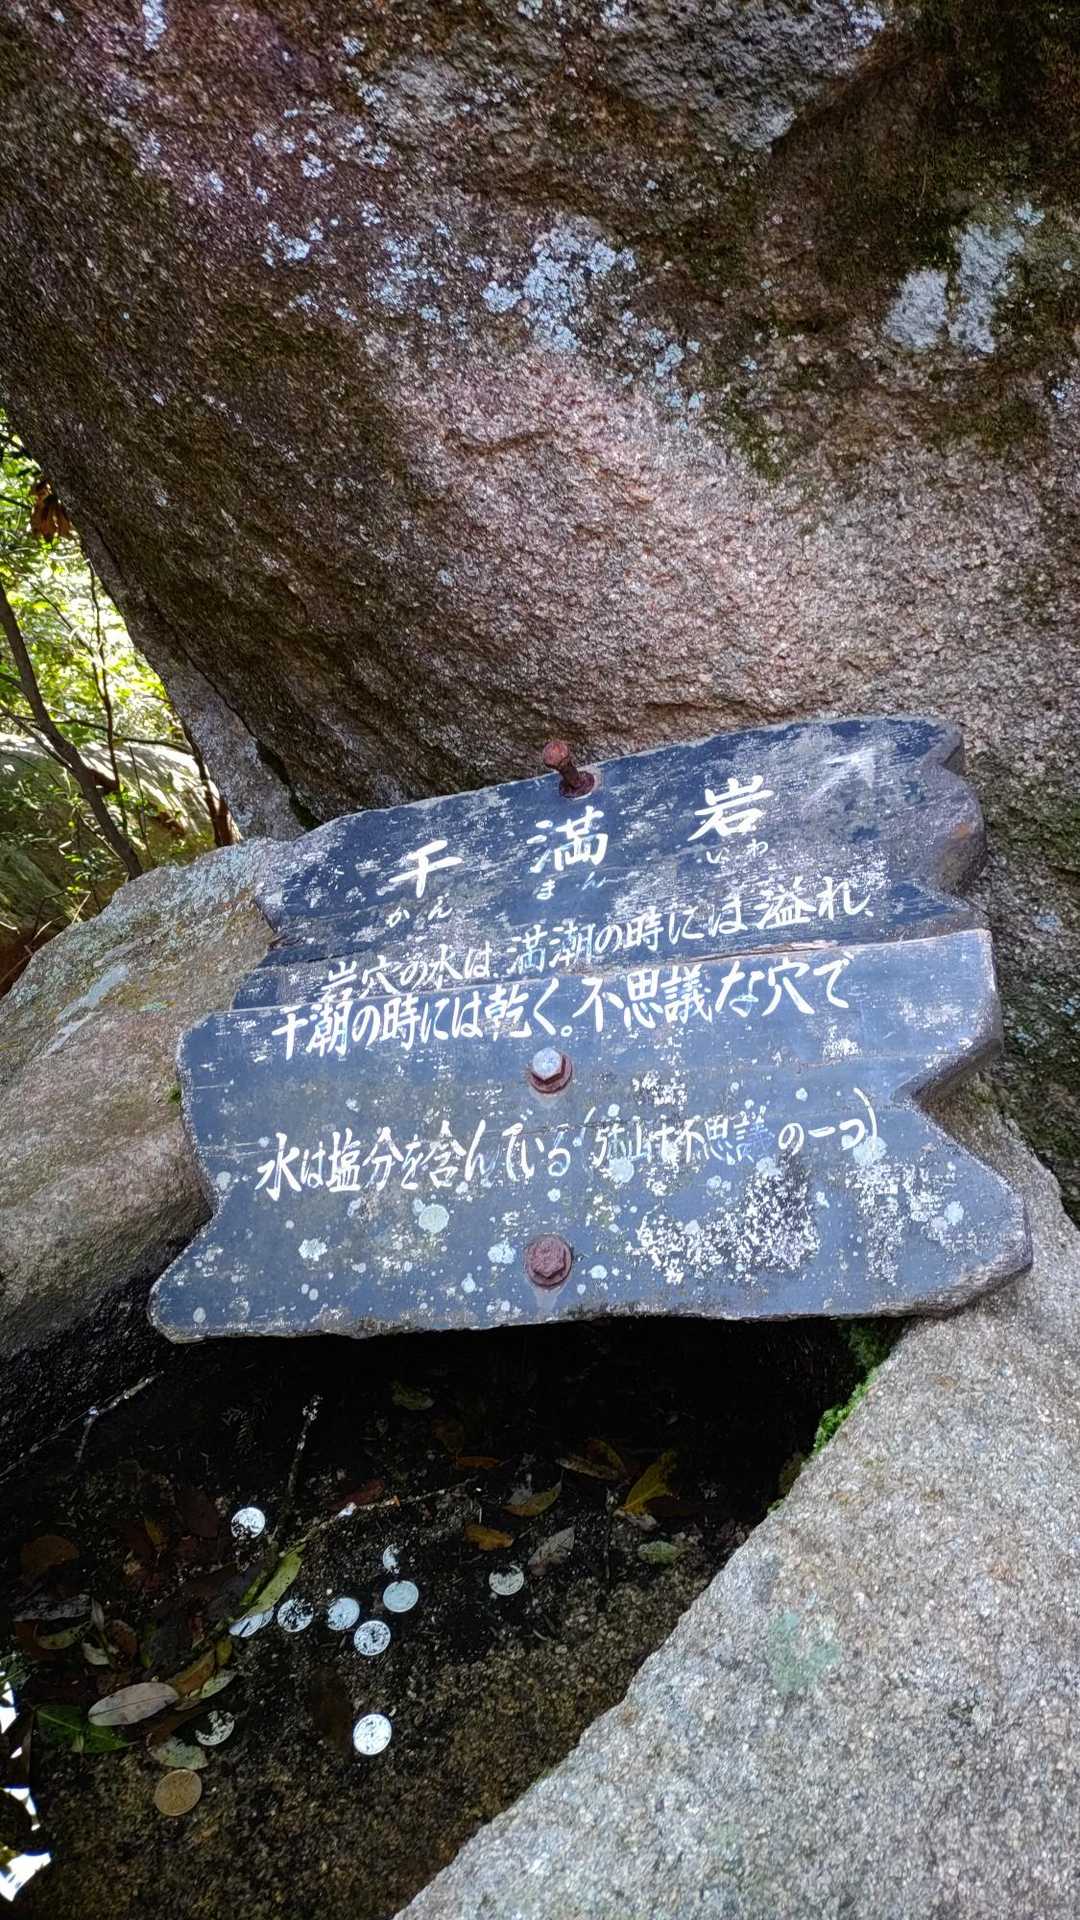 干満岩
かんまんいわ
岩穴の水は、満潮の時には溢れ、
干潮の時には乾く。不思議な穴で
水は塩分を含んでいる（弥山七不思議の一つ）